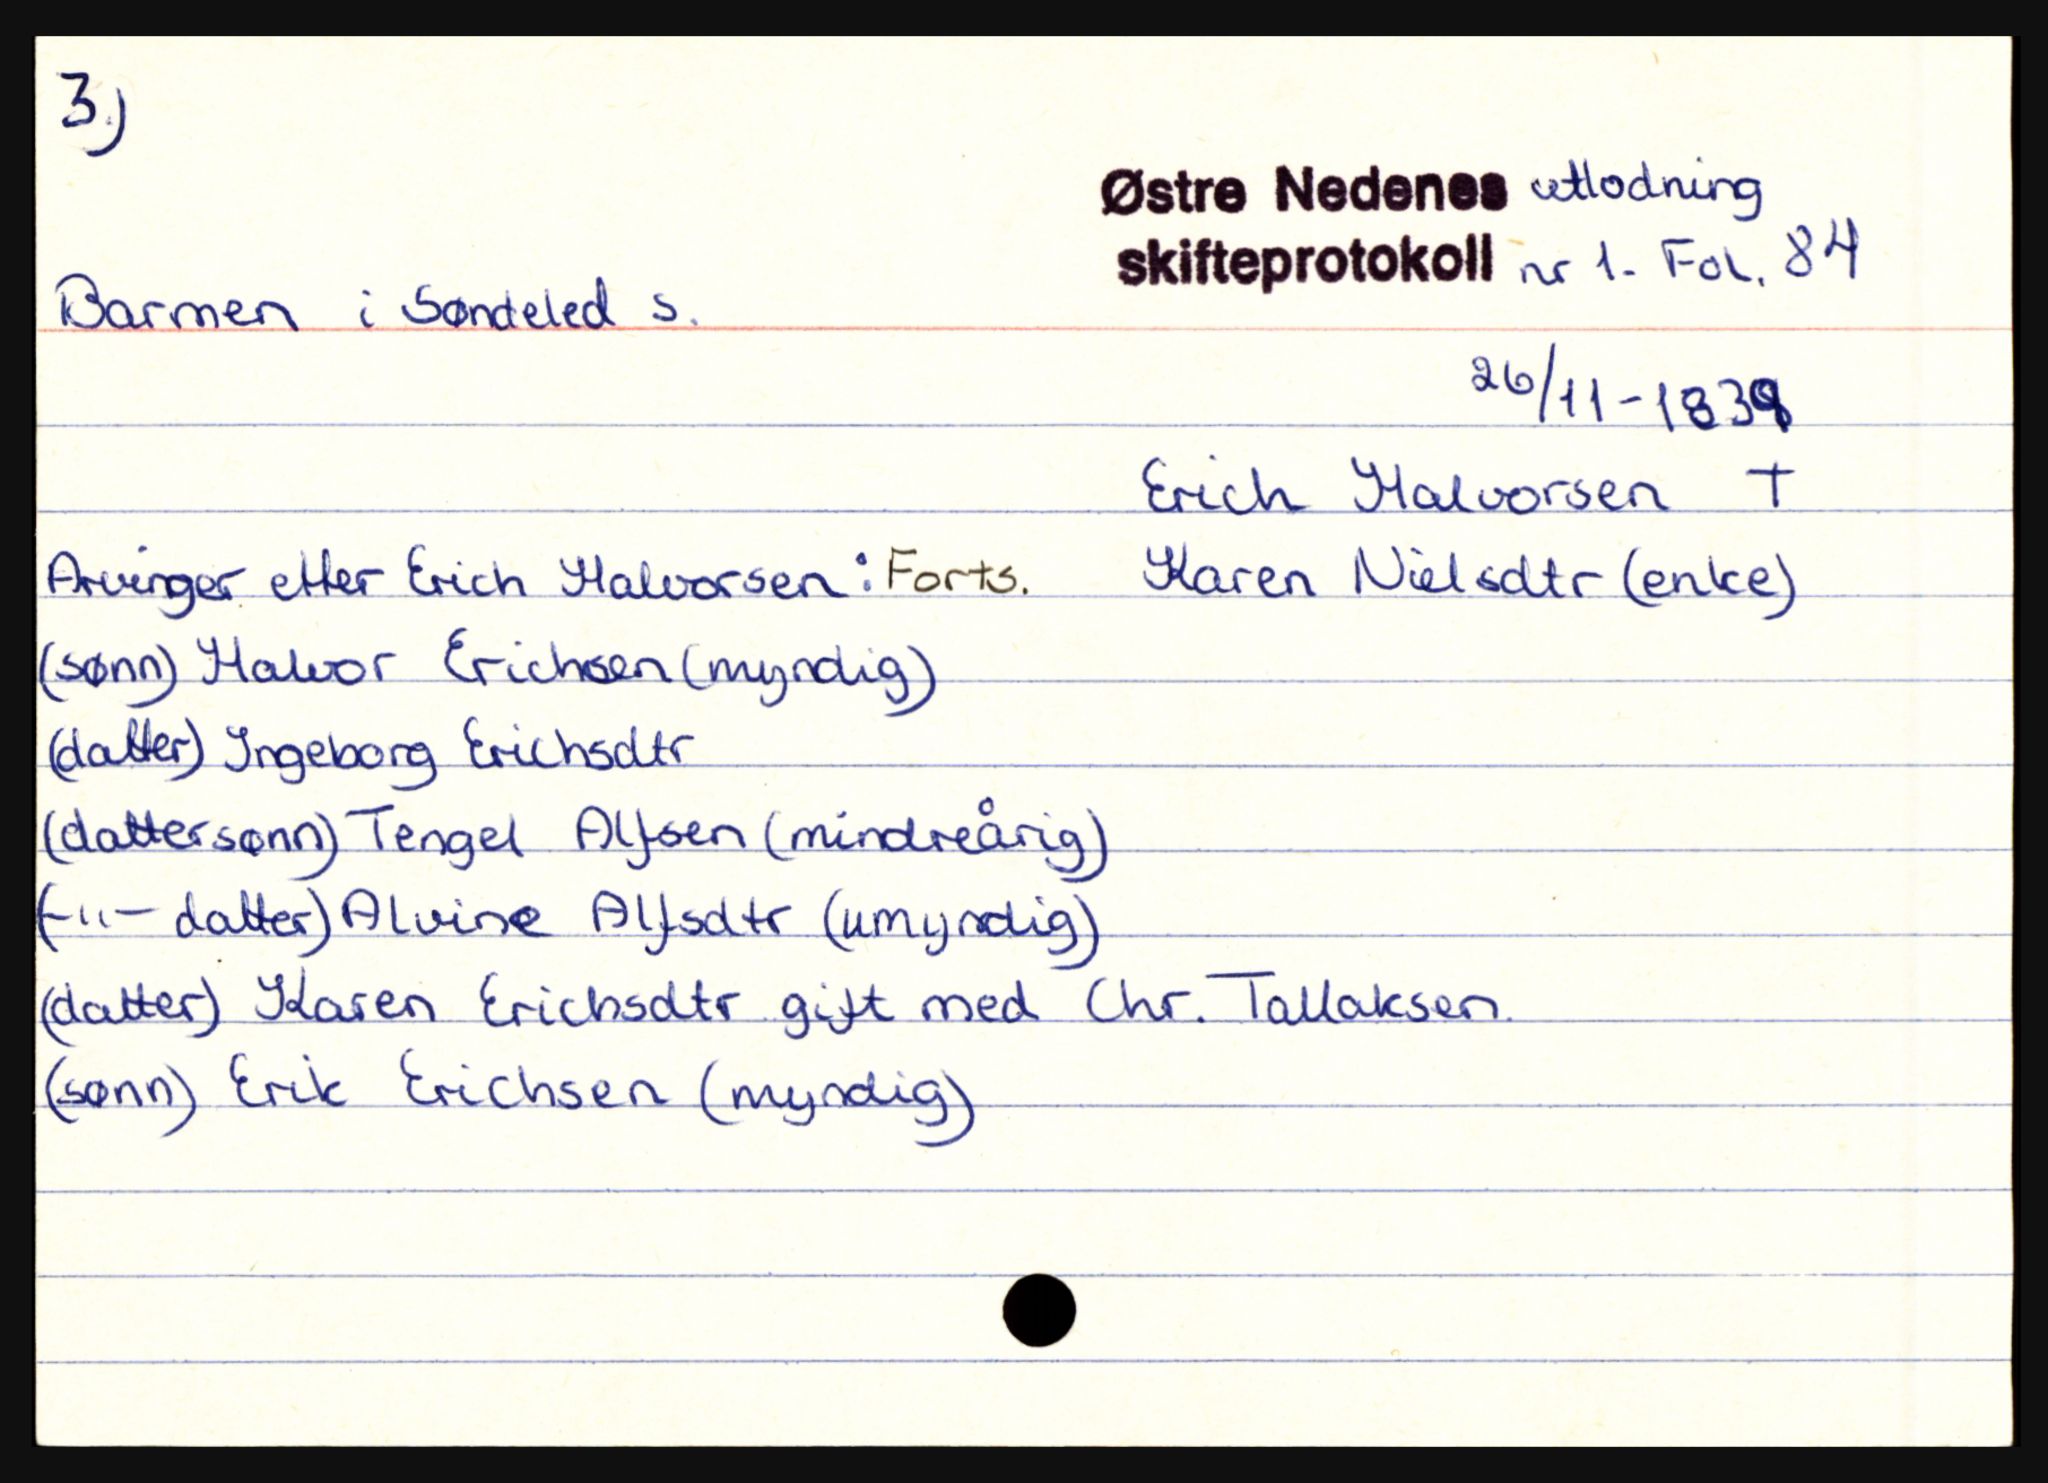 3.)
Østre Nedenes utlodning
skifteprotokoll nr 1. Fol. 84
Barmen i Søndeled s.
26/11-1839
Erich Halvorsen †
Arvinger etter Erich Halvorsen: Forts. Karen Nielsdtr (enke)
(sønn) Halvor Erichsen (myndig)
(datter) Ingeborg Erichsdtr
(dattersønn) Tengel Alfsen (mindreårig)
(-"- datter) Alvine Alfsdtr (umyndig)
(datter) Karen Erichsdtr gift med Chr. Tallaksen
(sønn) Erik Erichsen (myndig)